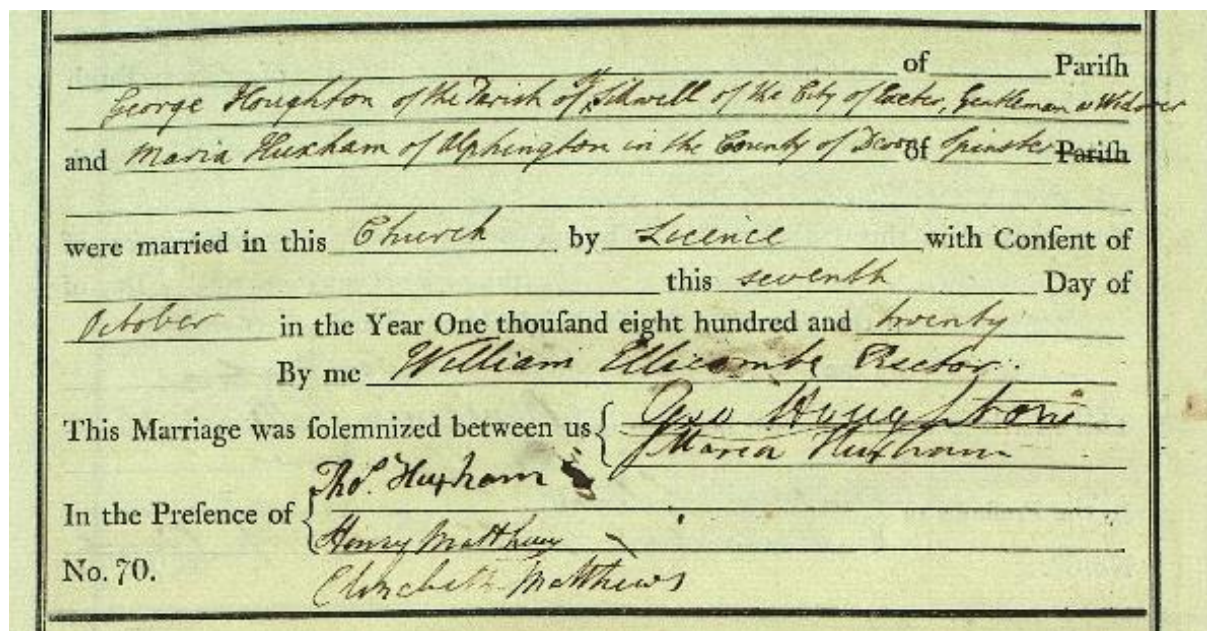 of Pariſh
George Houghton of the Parish of St Sidwell of the City of Exeter, Gentleman a Widower
and Maria Huxham of Alphington in the County of Devon of Spinster Pariſh
were married in this Church by Licence with Conſent of
this seventh Day of
October in the Year One thouſand eight hundred and twenty
By me William Ellicombe Rector.
This Marriage was ſolemnized between us { Geo Houghton
Maria Huxham
Thos. Huxham
In the Preſence of {
Henry Matthews
No. 70.
Elizabeth Matthews